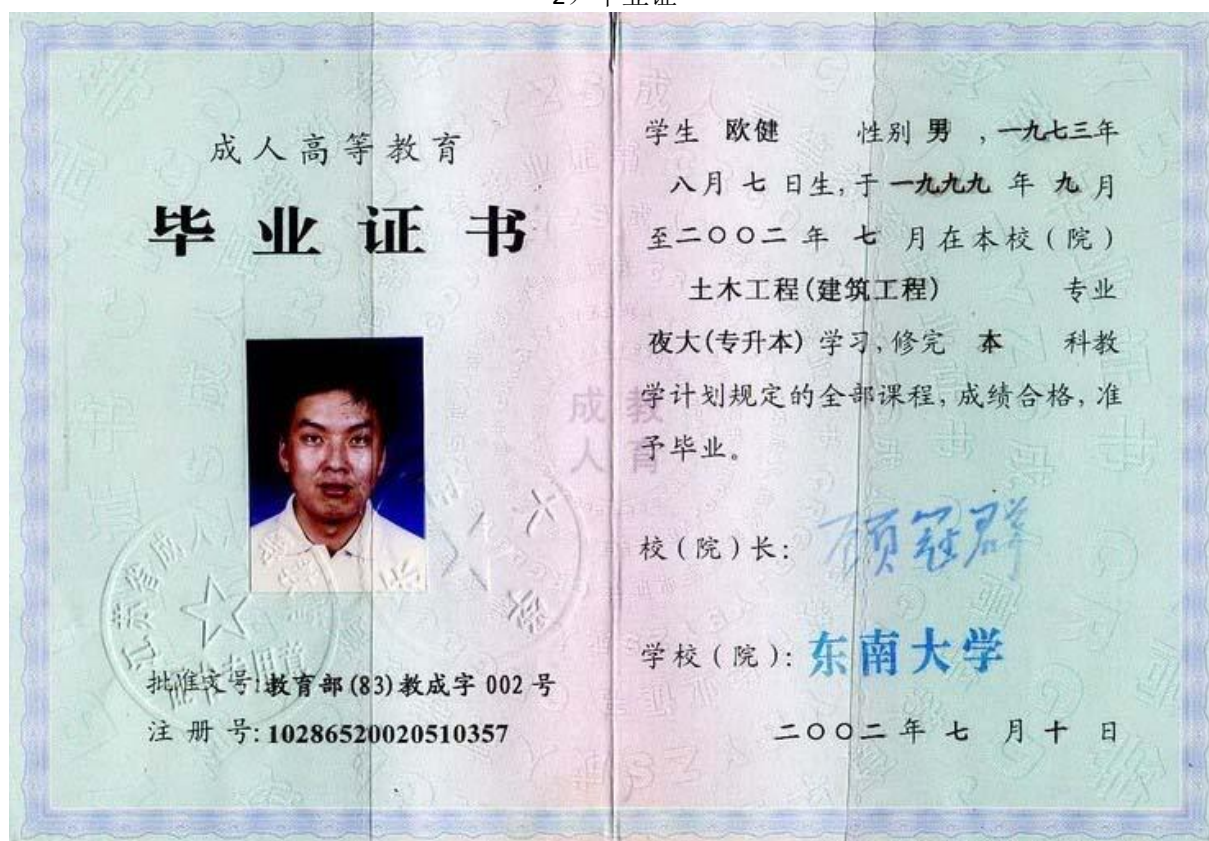 2）毕业证
成人高等教育
毕业证书
批准文号:教育部(83)教成字 002 号
注 册 号:10286520020510357
学生 欧健 性别 男 ,一九七三年
八月 七 日生,于 一九九九 年 九 月
至二〇〇二 年 七 月在本校(院)
土木工程(建筑工程) 专业
夜大(专升本) 学习,修完 本 科教
学计划规定的全部课程,成绩合格,准
予毕业。
校(院)长: 顾冠群
学校(院): 东南大学
二〇〇二 年 七 月 十 日
成教
人育